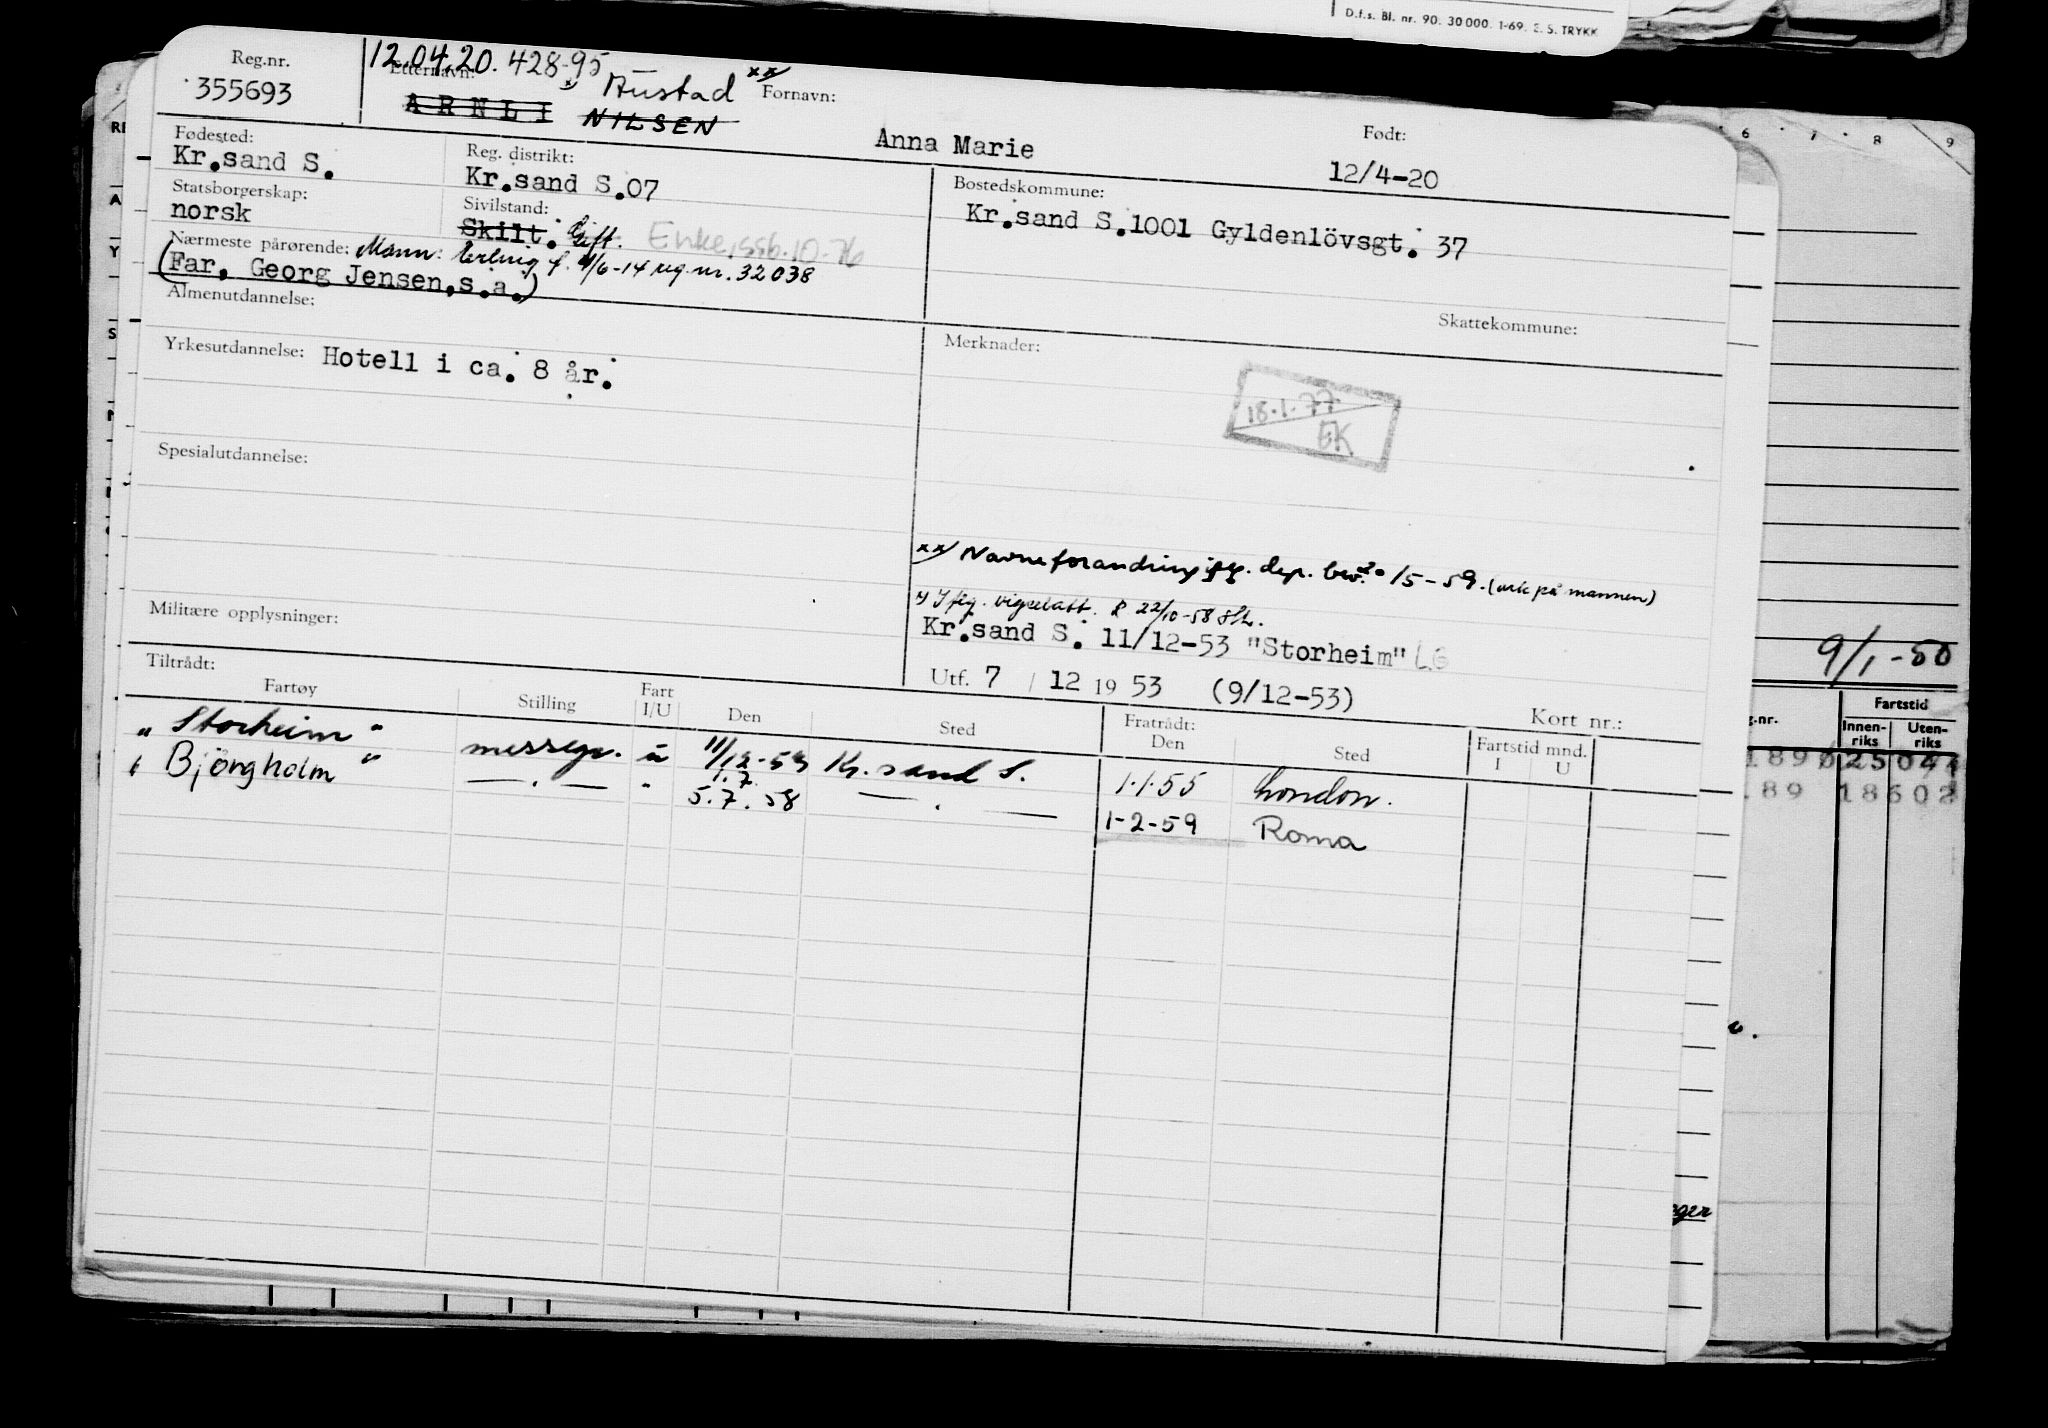 D.f.s. Bl. nr. 90. 30 000. 1-69. E. S. TRYKK
Reg.nr.
355693
12.04.20. 428-95
Etternavn:
x Austad xx/
Fornavn:
ARNLI NILSEN
Anna Marie
Født:
12/4-20
Fødested:
Kr.sand S.
Reg. distrikt:
Kr.sand S.07
Bostedskommune:
Kr.sand S.1001 Gyldenlövsgt. 37
Statsborgerskap:
norsk
Sivilstand:
Skilt. Gift. Enke, ssb.10-76
Nærmeste pårørende: Mann: Erling f. 11/6-14 reg.nr. 32038
(Far, Georg Jensen,s.a.)
Almenutdannelse:
Skattekommune:
Yrkesutdannelse: Hotell i ca. 8 år.
Merknader:
18.1.77
EK
Spesialutdannelse:
xx/ Navneforandring iflg. dep. bev. 20/5-59. (ark på mannen)
x) Iflg. vigselatt. 22/10-58
Militære opplysninger:
Kr.sand S. 11/12-53 "Storheim" LG
Utf. 7 / 12 19 53 (9/12-53)
Kort nr.:
Tiltrådt:
Fartøy
Stilling
Fart I/U
Den
Sted
Fratrådt:
Den
Sted
Fartstid mnd.
I U
"Storheim" messegn. u 11/12-53 Kr.sand S. 1.1.55 London.
1.7.
"Björgholm" —.— " 5.7.58 —.— 1-2-59 Roma
6 7 8 9
9/1-50
g.nr.
Fartstid
Innen-riks
Uten-riks